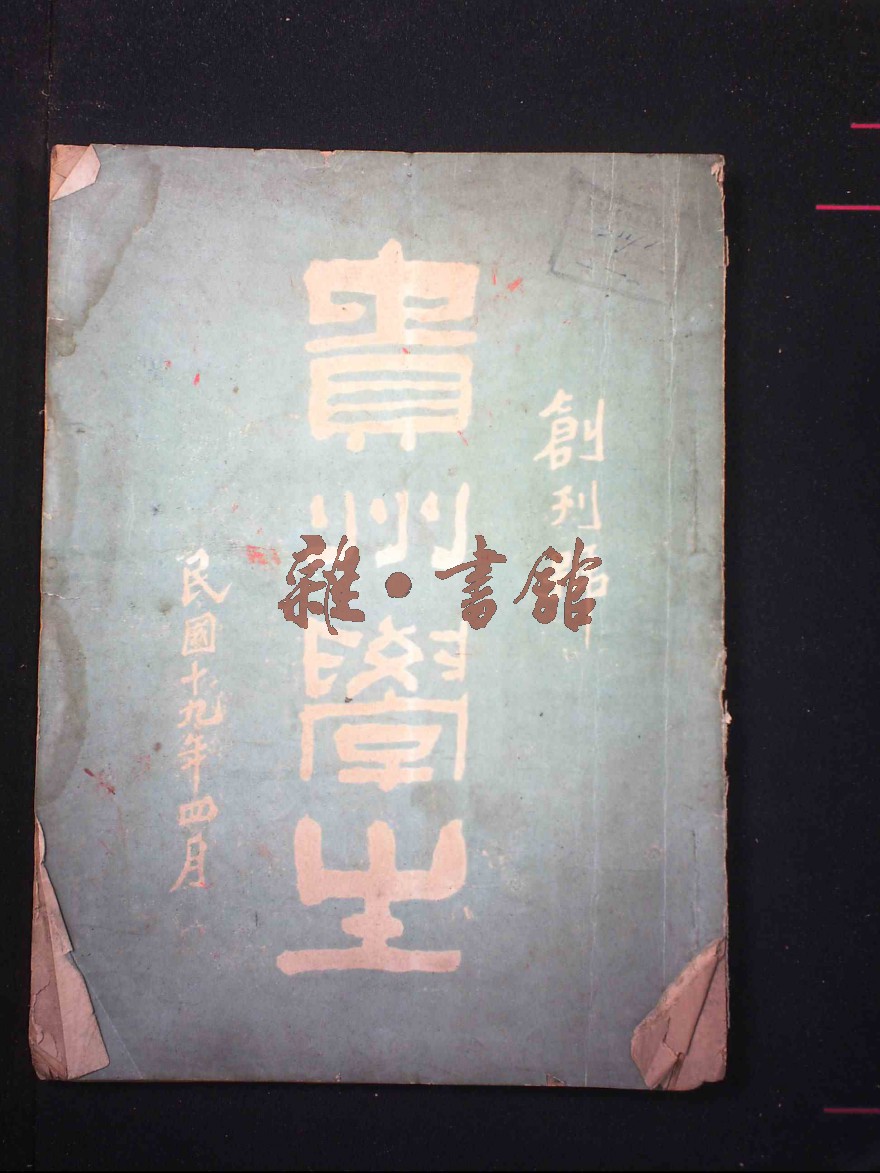 創刊號
貴州學生
民國十九年四月
雜·書館